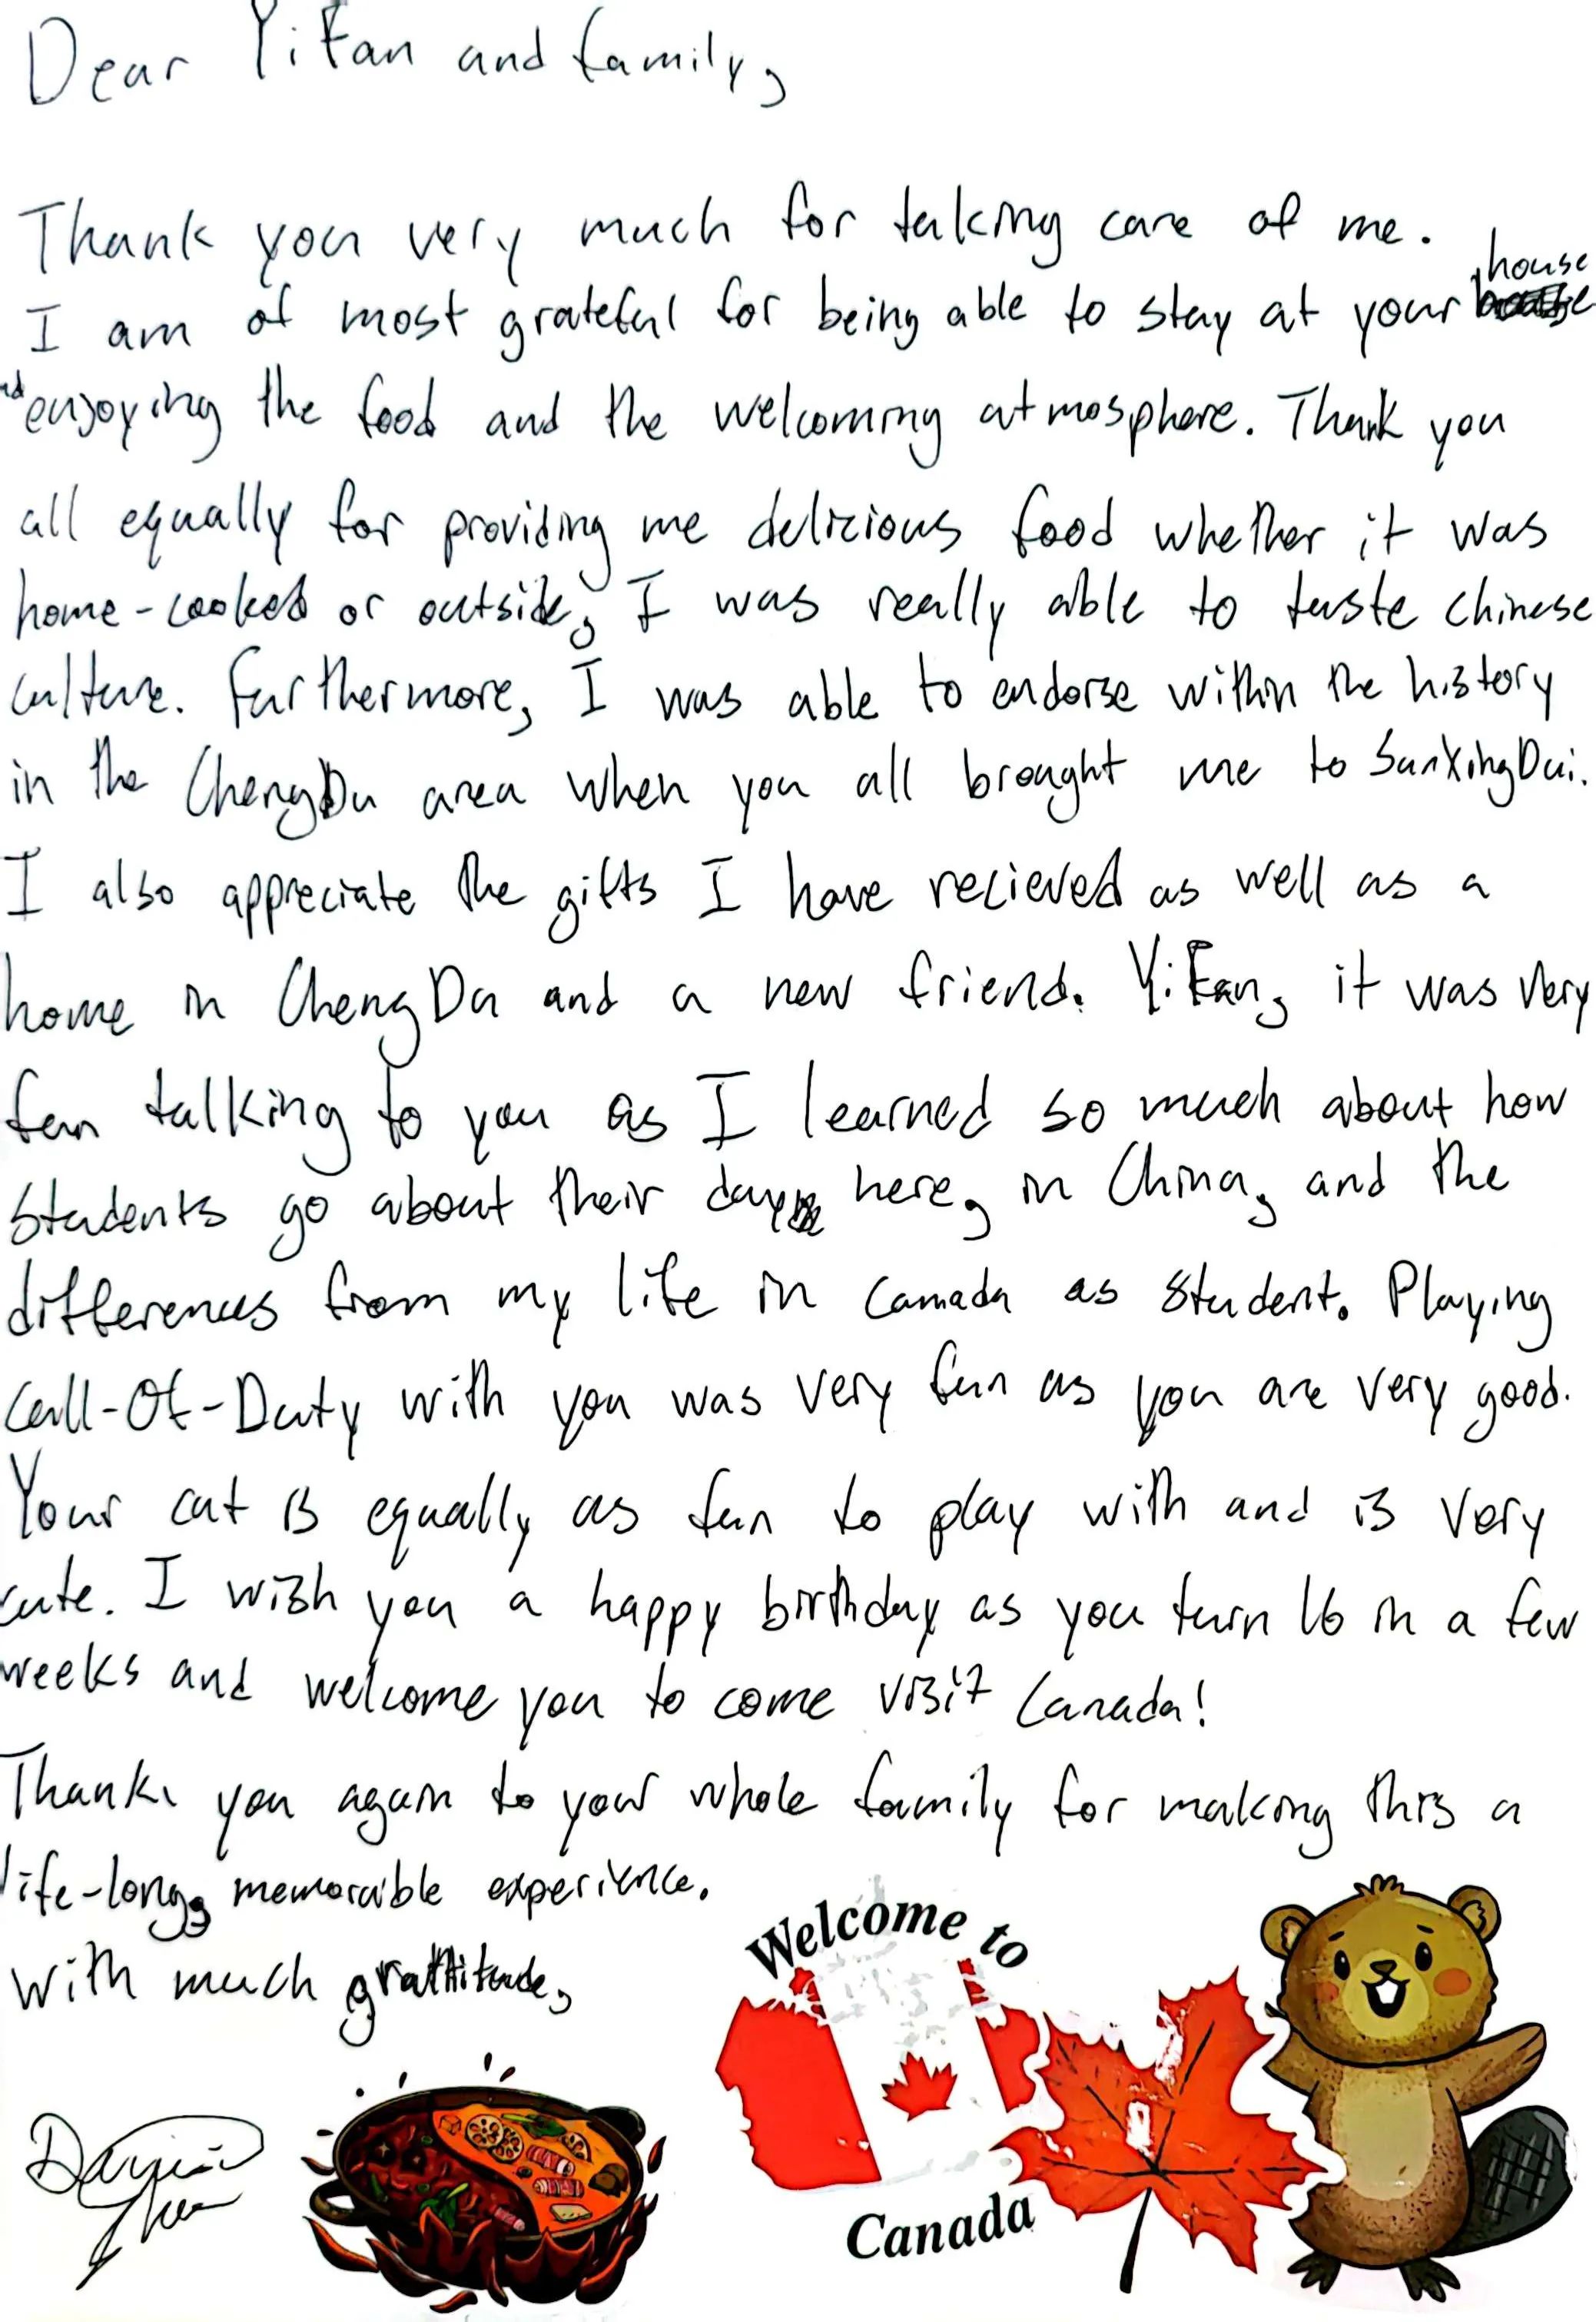 Dear YiFan and family,
Thank you very much for taking care of me.
I am of most grateful for being able to stay at your house
and enjoying the food and the welcoming atmosphere. Thank you
all equally for providing me delicious food whether it was
home-cooked or outside, I was really able to taste chinese
culture. Furthermore, I was able to endorse within the history
in the ChengDu area when you all brought me to SanXingDui.
I also appreciate the gifts I have recieved as well as a
home in ChengDu and a new friend. YiFan, it was very
fun talking to you as I learned so much about how
students go about their day here, in China, and the
differences from my life in Canada as student. Playing
Call-Of-Duty with you was very fun as you are very good.
Your cat is equally as fun to play with and is very
cute. I wish you a happy birthday as you turn 16 in a few
weeks and welcome you to come visit Canada!
Thank you again to your whole family for making this a
life-long, memorable experience.
With much grattitude,
Welcome to
Canada